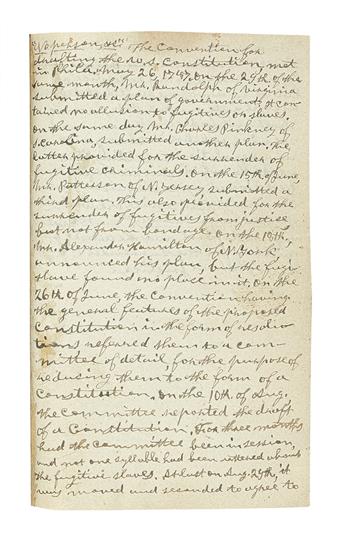 "No person, &c." The Convention for
drafting the U.S. Constitution, met
in Phila. May 26, 1787. On the 29th of the
same month, Mr. Randolph of Virginia
submitted a plan of government. It con-
tained no allusion to fugitives or slaves.
On the same day, Mr. Charles Pinkney of
S. Carolina, submitted another plan, the
latter provided for the surrender of
fugitive criminals. On the 15th of June,
Mr. Patterson of N. Jersey submitted a
third plan, this also provided for the
surrender of fugitives from justice
but not from bondage. On the 18th,
Mr. Alexander Hamilton of N. York
announced his plan, but the fugi-
slave found no place in it. On the
26th of June, the Convention having
the general features of the proposed
Constitution in the form of resolu-
tions referred them to a com-
mittee of detail, for the purpose of
reducing them to the form of a
Constitution. On the 10th of Aug.
the Committee reported the draft
of a Constitution. For three months
had the Committee been in session,
and not one syllable had been uttered about
the fugitive slaves. At last on Aug. 29th, it
was moved and seconded to agree to